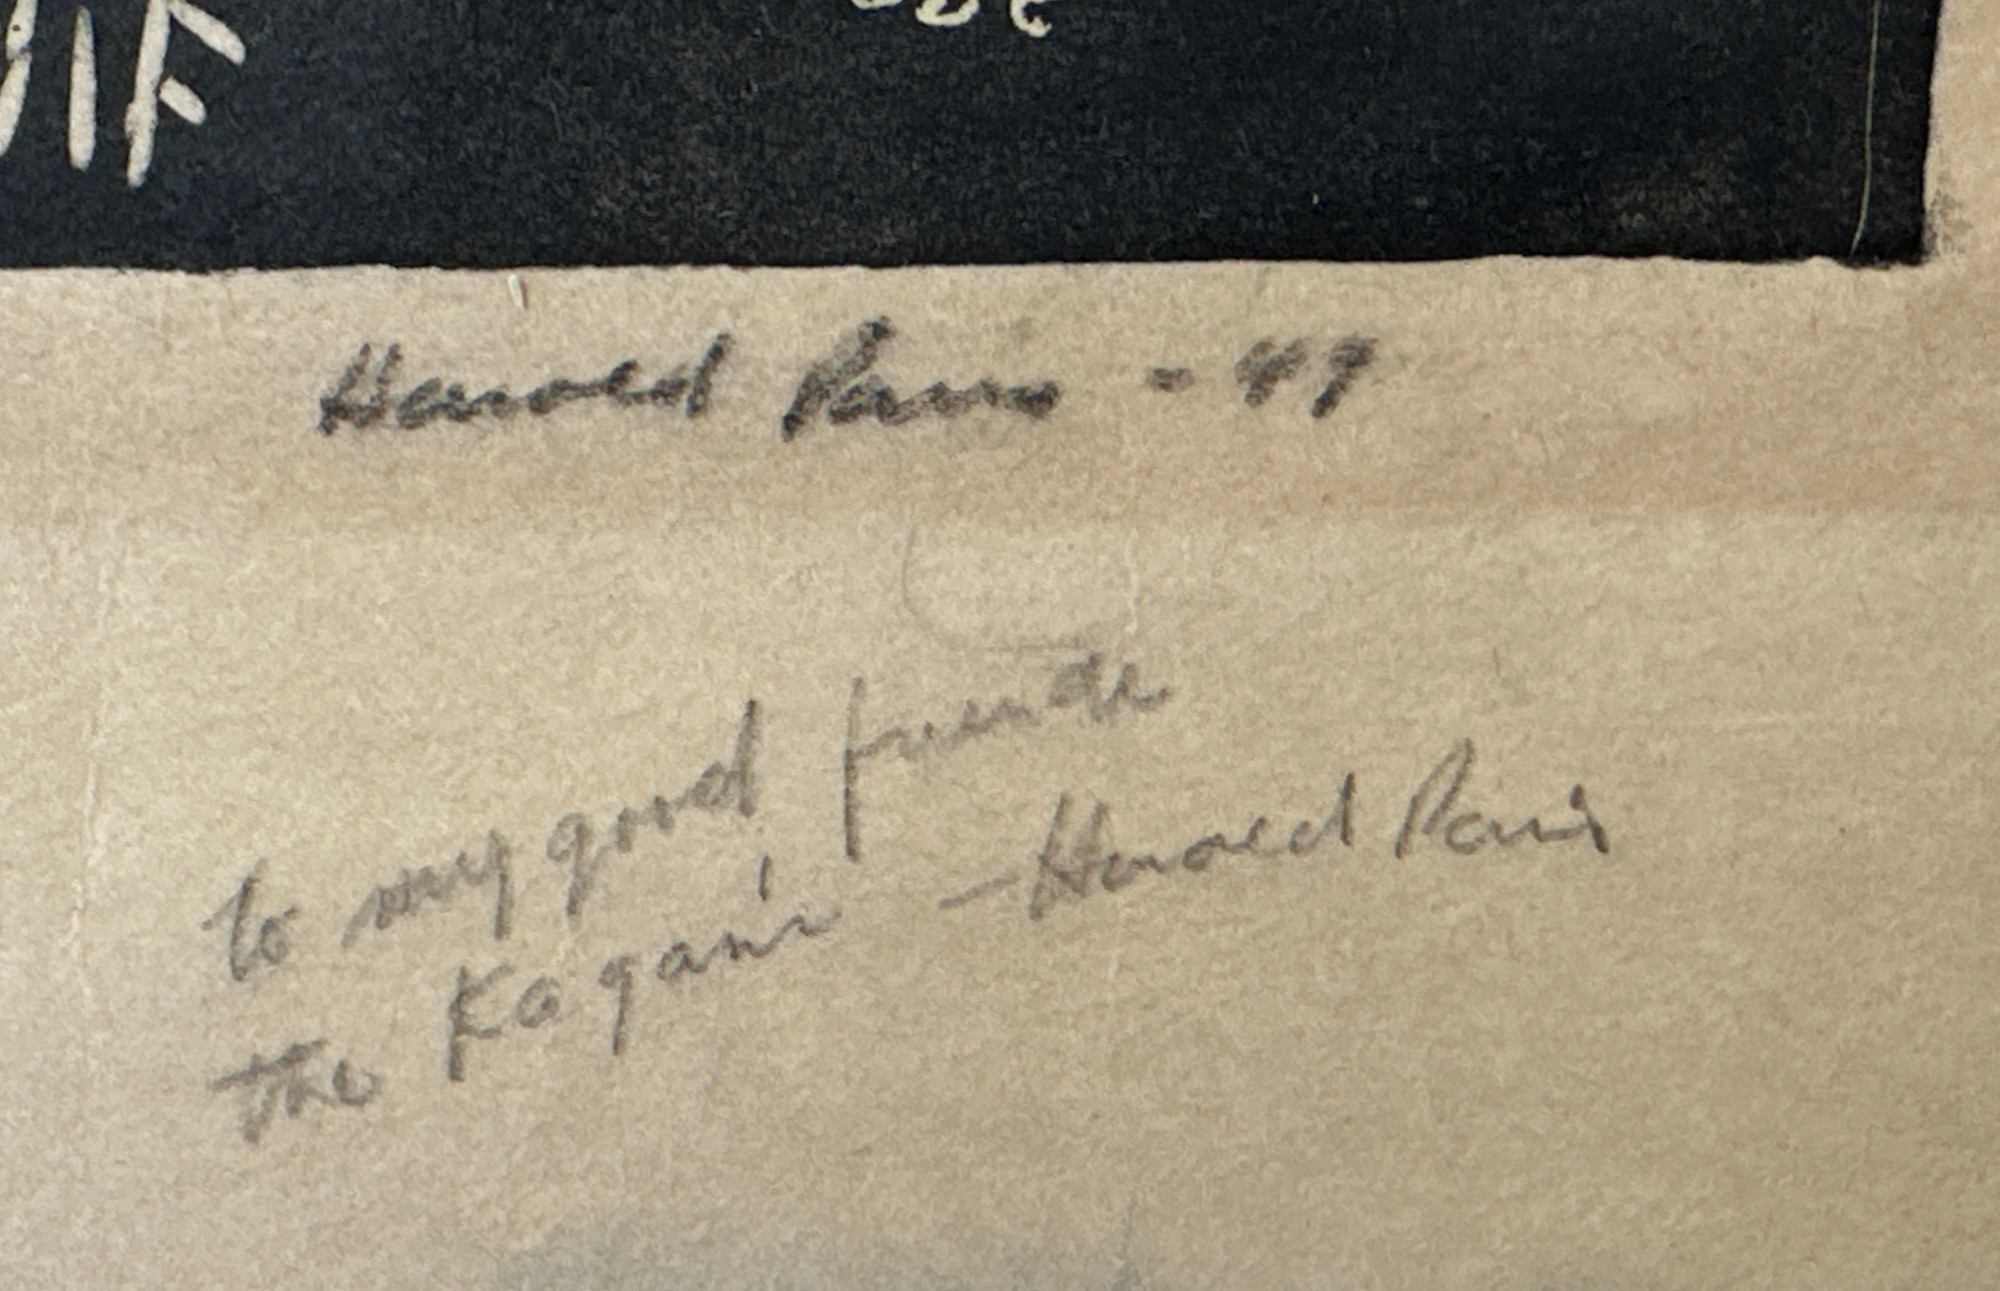 Harold Paris - 49
to my good friends
the Kagan's - Harold Paris